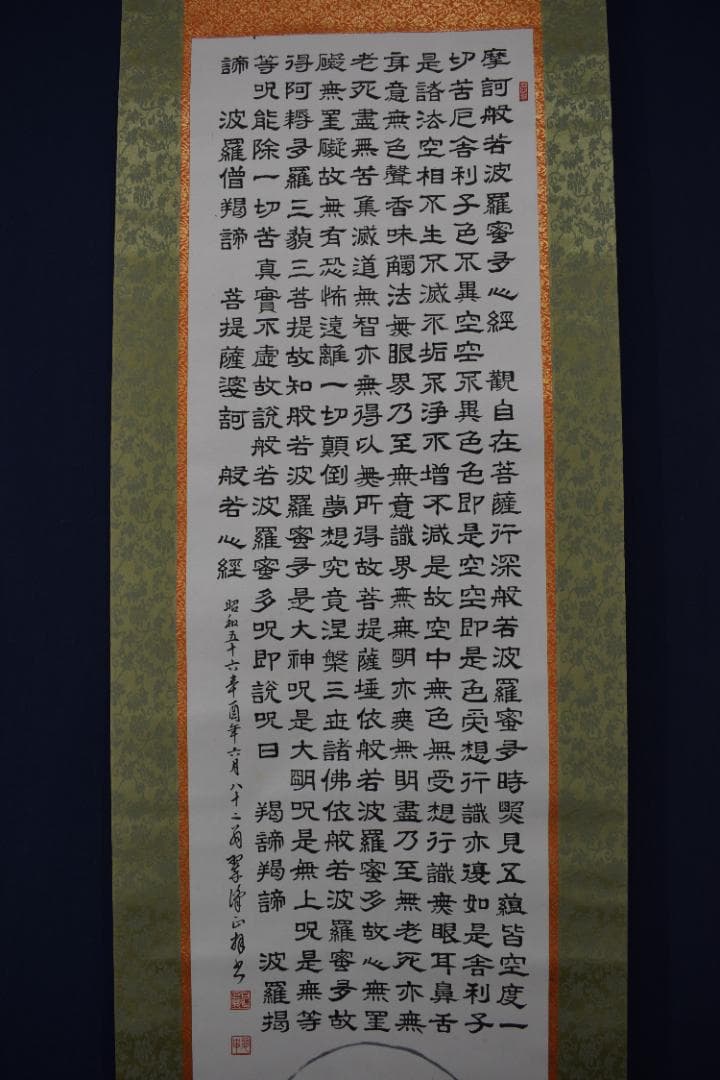 摩訶般若波羅蜜多心經　觀自在菩薩行深般若波羅蜜多時照見五蘊皆空度一
切苦厄舍利子色不異空空不異色色即是空空即是色受想行識亦復如是舍利子
是諸法空相不生不滅不垢不淨不增不減是故空中無色無受想行識無眼耳鼻舌
身意無色聲香味觸法無眼界乃至無意識界無無明亦無無明盡乃至無老死亦無
老死盡無苦集滅道無智亦無得以無所得故菩提薩埵依般若波羅蜜多故心無罣
礙無罣礙故無有恐怖遠離一切顛倒夢想究竟涅槃三世諸佛依般若波羅蜜多故
得阿耨多羅三藐三菩提故知般若波羅蜜多是大神呪是大明呪是無上呪是無等
等呪能除一切苦真實不虛故說般若波羅蜜多呪即說呪曰　羯諦羯諦　波羅揭
諦　波羅僧羯諦　菩提薩婆訶　般若心經
昭和五十六辛酉年六月八十二翁